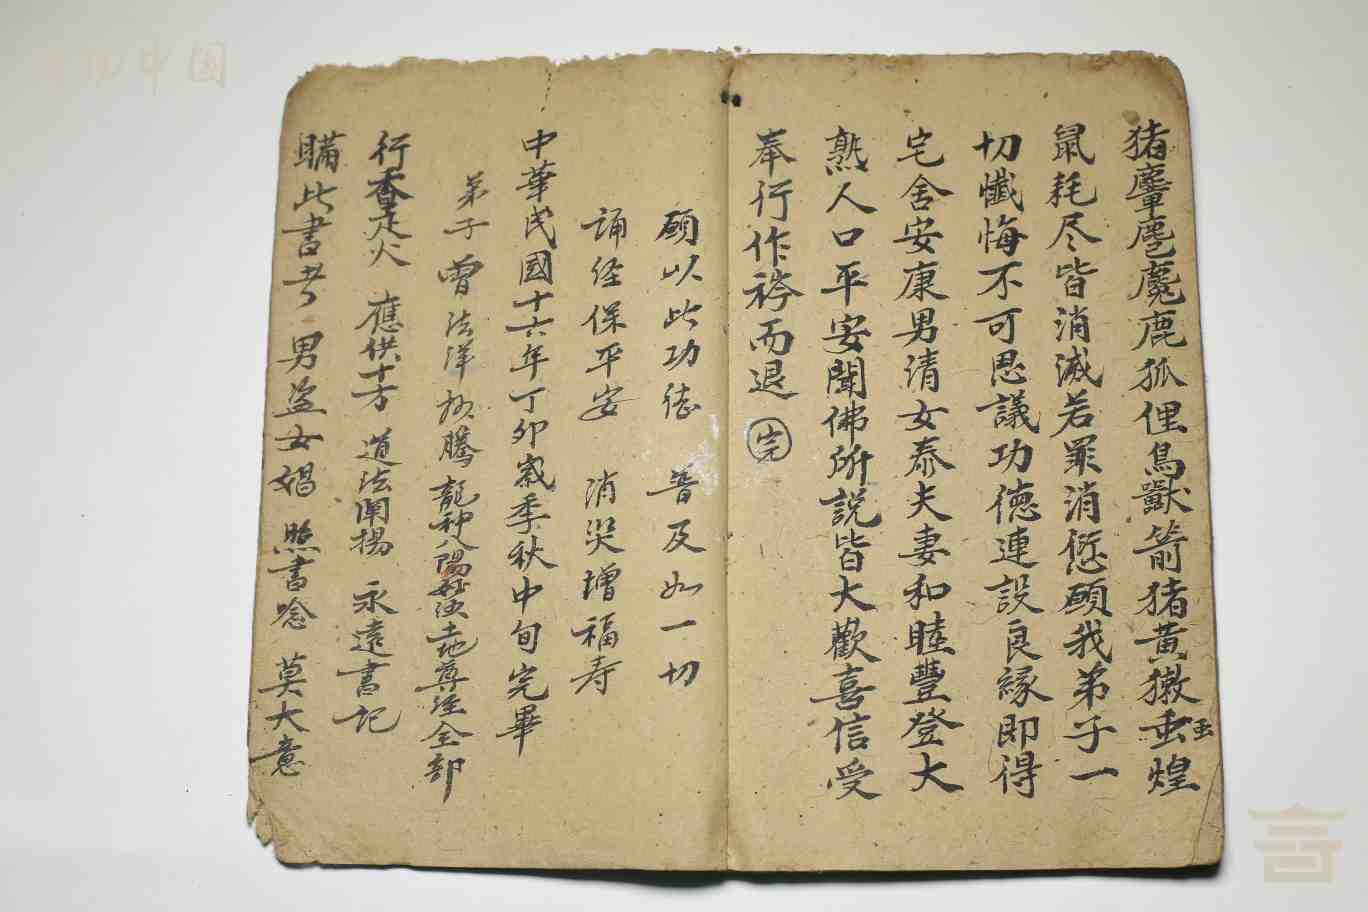 猪麞麅麂鹿狐俚鳥獸箭猪黃獤䖝蝗
鼠耗尽皆消滅若罪消愆願我弟子一
切懺悔不可思議功德連設良緣即得
宅舍安康男清女泰夫妻和睦豐登大
熟人口平安聞佛所説皆大歡喜信受
奉行作禮而退 完
願以此功德 普及如一切
誦经保平安 消災增福寿
中華民國十六年丁卯歲季秋中旬完畢
弟子曾法洋 騰龍神八陽 土地尊经全部
行香走火 應供十方 道法闡揚 永遠書記
瞞此書者 男盗女娼 照書唸 莫大意
中国